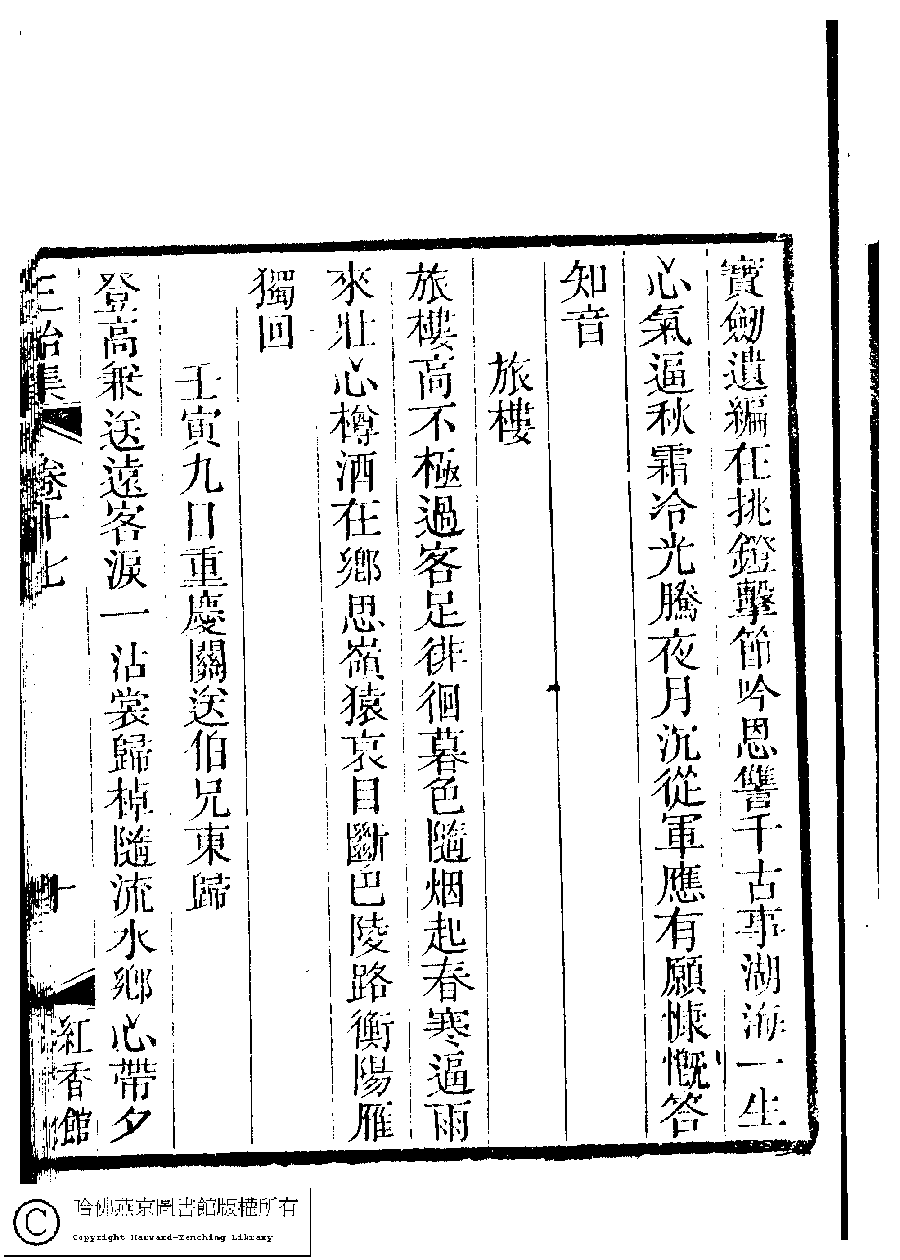 寶劒遺編在挑鐙擊節吟恩讐千古事湖海一生
心氣逼秋霜冷光騰夜月沉從軍應有願慷慨答
知音
旅樓
旅樓高不極過客足徘徊暮色隨烟起春寒逼雨
來壯心樽酒在鄉思嶺猿哀目斷巴陵路衡陽雁
獨回
壬寅九日重慶關送伯兄東歸
登高兼送遠客淚一沾裳歸棹隨流水鄉心帶夕
集 卷十七 紅香館
哈佛燕京圖書館版權所有
Copyright Harvard-Yenching Library